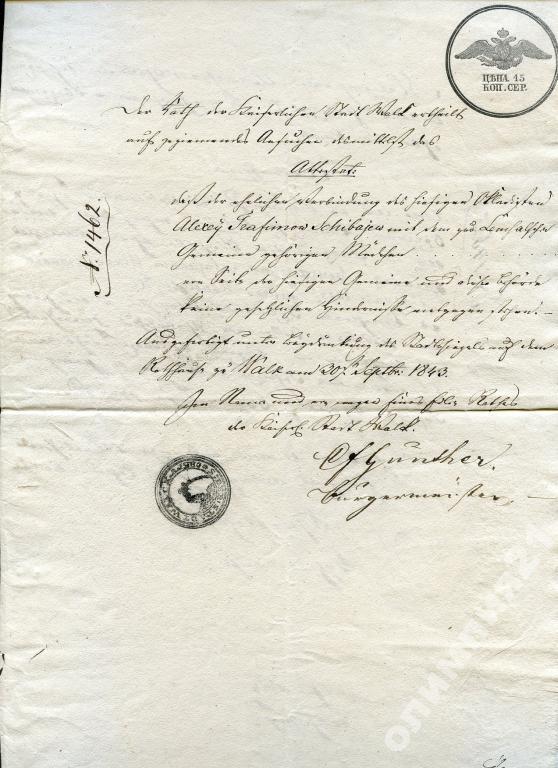 ЦѢНА 15
КОП. СЕР.
Der Rath der Kaiserlichen Stadt Walk ertheilt
auf geziemendes Ansuchen desmittelst das
Attestat:
daß der ehelichen Verbindung des hiesigen Okladisten
Alexey Trafimow Schibajew mit dem zur
Gemeine gehörigen Mädchen . . . . . .
von Seiten der hiesigen Gemeine und dieser Behörde
keine gesetzlichen Hindernisse entgegen stehen. —
Ausgefertigt unter Beydrückung des Stadtsiegels auf dem
Rathhause zu Walk am 20. Septbr. 1843.
Im Namen und von wegen Eines Edlen Rathes
der Kaiserl. Stadt Walk.
Günther.
Bürgermeister
№ 1462.
олимпия21